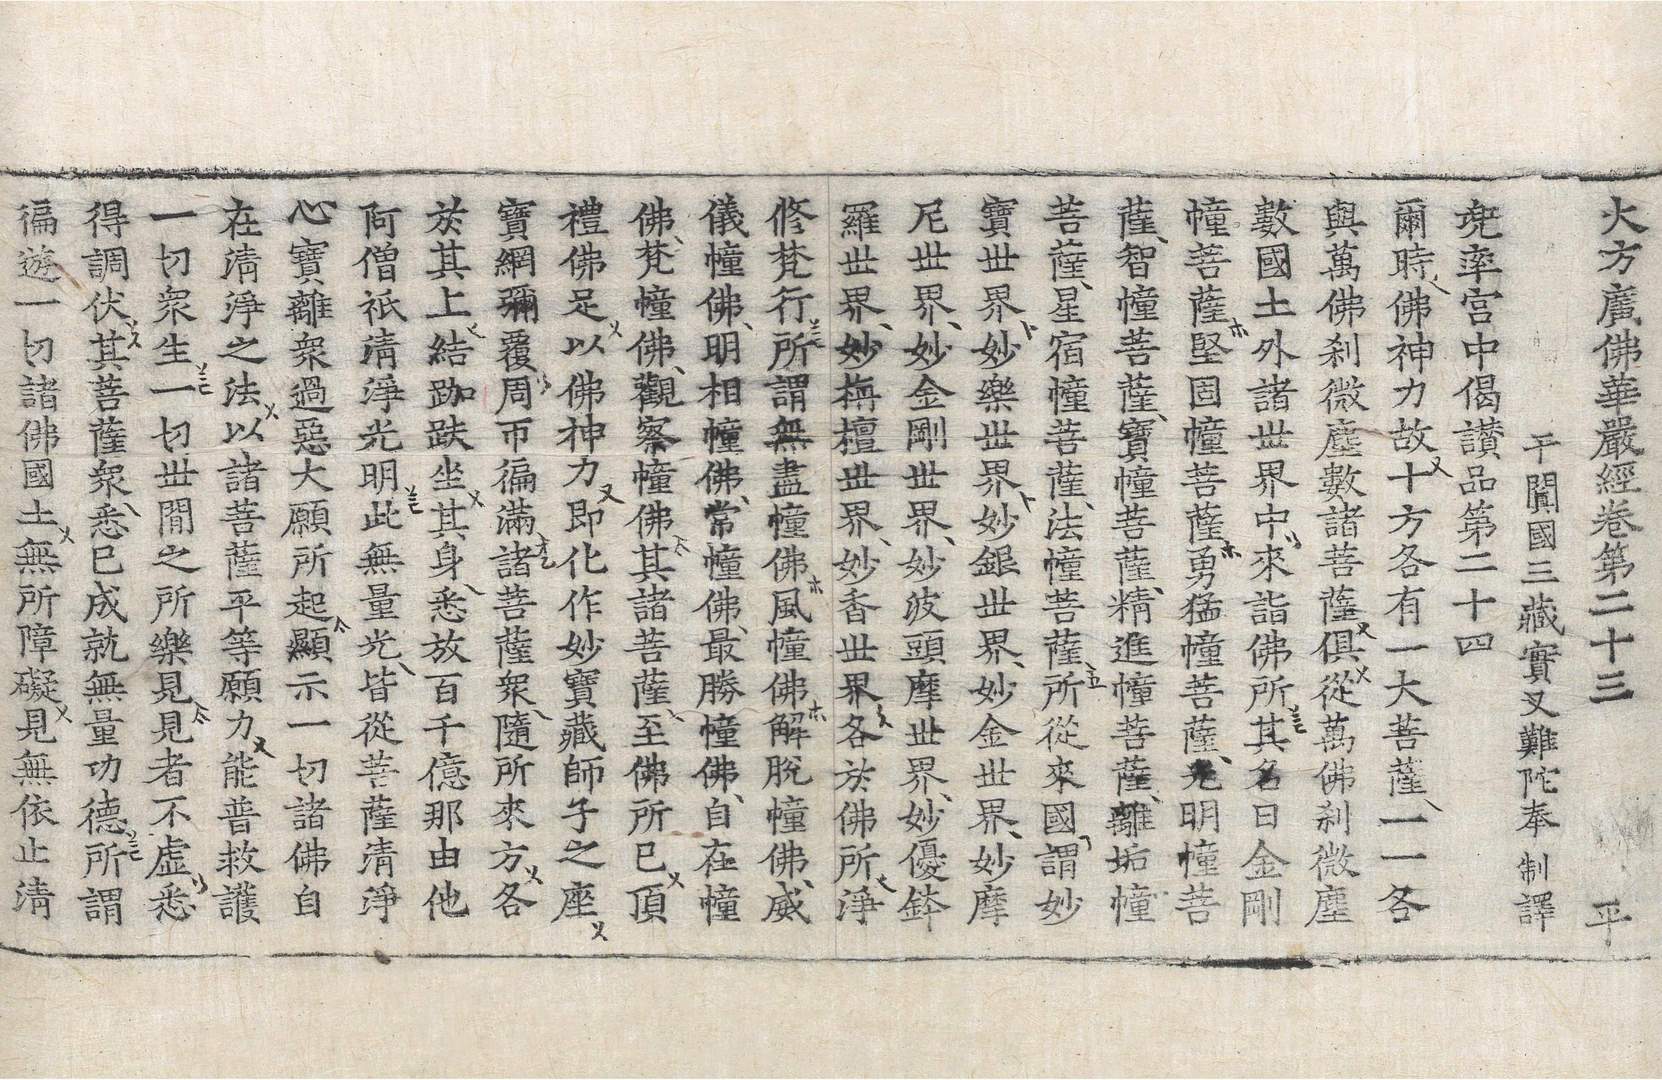 大方廣佛華嚴經卷第二十三 平
于闐國三藏實叉難陀奉 制譯
兜率宮中偈讃品第二十四
爾時佛神力故十方各有一大菩薩一一各
與萬佛刹微塵數諸菩薩俱從萬佛刹微塵
數國土外諸世界中來詣佛所其名曰金剛
幢菩薩堅固幢菩薩勇猛幢菩薩光明幢菩
薩智幢菩薩寶幢菩薩精進幢菩薩離垢幢
菩薩星宿幢菩薩法幢菩薩所從來國謂妙
寶世界妙樂世界妙銀世界妙金世界妙摩
尼世界妙金剛世界妙波頭摩世界妙優鉢
羅世界妙栴檀世界妙香世界各於佛所淨
修梵行所謂無盡幢佛風幢佛解脫幢佛威
儀幢佛明相幢佛常幢佛最勝幢佛自在幢
佛梵幢佛觀察幢佛其諸菩薩至佛所已頂
禮佛足以佛神力即化作妙寶藏師子之座
寶網彌覆周帀徧滿諸菩薩衆隨所來方各
於其上結跏趺坐其身悉放百千億那由他
阿僧祇清淨光明此無量光皆從菩薩清淨
心寶離衆過惡大願所起顯示一切諸佛自
在清淨之法以諸菩薩平等願力能普救護
一切衆生一切世閒之所樂見見者不虛悉
得調伏其菩薩衆悉已成就無量功德所謂
徧遊一切諸佛國土無所障礙見無依止清